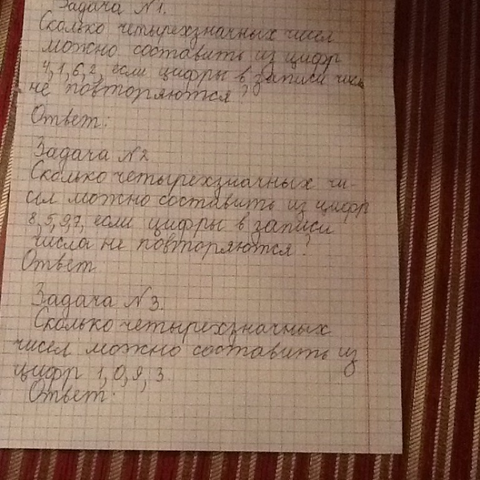 Задача N1.
Сколько четырехзначных чисел
можно составить из цифр
4,1,6,2, если цифры в записи числа
не повторяются?
Ответ:
Задача N2
Сколько четырехзначных чи-
сел можно составить из цифр
8,5,9,7, если цифры в записи
числа не повторяются.
Ответ
Задача N3.
Сколько четырехзначных
чисел можно составить из
цифр 1,0,9,3.
Ответ: